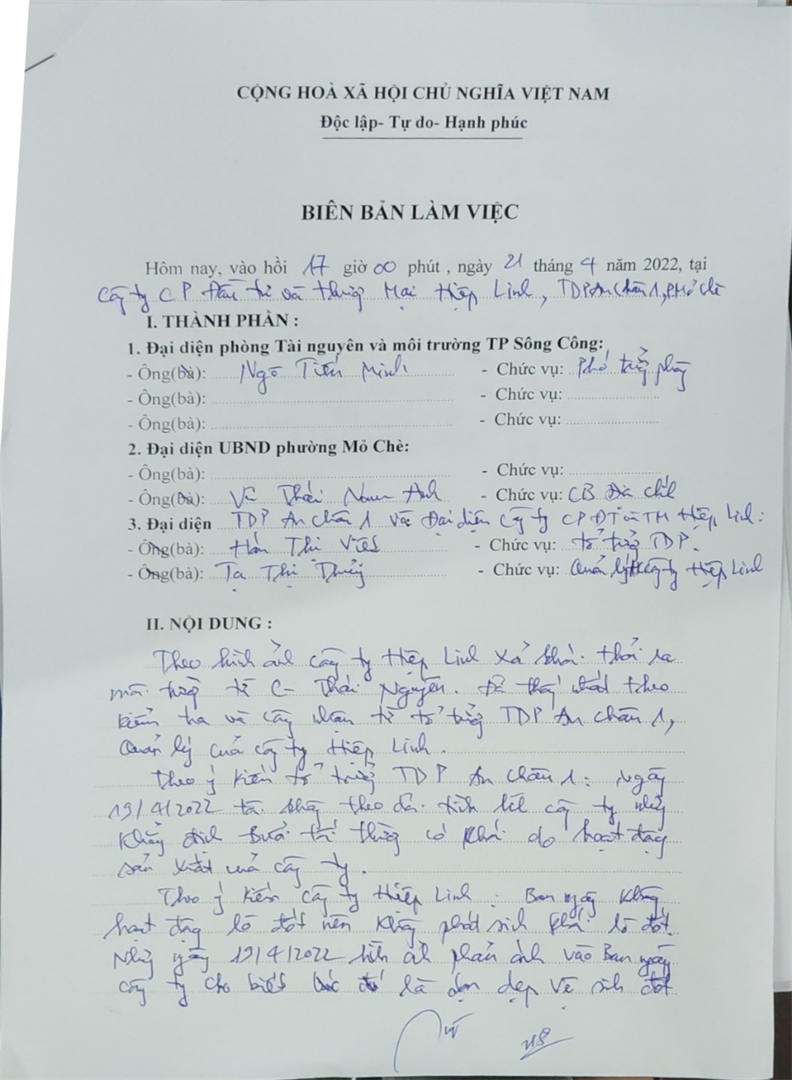 CỘNG HOÀ XÃ HỘI CHỦ NGHĨA VIỆT NAM
Độc lập- Tự do- Hạnh phúc
BIÊN BẢN LÀM VIỆC
Hôm nay, vào hồi 17 giờ 00 phút , ngày 21 tháng 4 năm 2022, tại
Công ty CP Đầu tư và thương Mại Hiệp Linh, TDP An Châu 1, P Mỏ chè
I. THÀNH PHẦN :
1. Đại diện phòng Tài nguyên và môi trường TP Sông Công:
- Ông(bà): Ngô Tiến Minh - Chức vụ: Phó trưởng phòng
- Ông(bà): - Chức vụ:
- Ông(bà): - Chức vụ:
2. Đại diện UBND phường Mỏ Chè:
- Ông(bà): - Chức vụ:
- Ông(bà): Vũ Thái Nam Anh - Chức vụ: CB Địa chính
3. Đại diện TDP An châu 1 và Đại diện Công ty CP ĐT và TM Hiệp Linh:
- Ông(bà): Thị - Chức vụ: tổ trưởng TDP.
- Ông(bà): Tạ Thị Thủy - Chức vụ: Quản lý công ty Hiệp Linh
II. NỘI DUNG :
Theo hình ảnh công ty Hiệp Linh xả khói thải ra
môi trường từ C- Thái Nguyên. theo
kiểm tra và công nhận từ tổ trưởng TDP An châu 1,
Quản lý của công ty Hiệp Linh.
Theo ý kiến tổ trưởng TDP An châu 1: Ngày
19/4/2022 tôi không theo dõi công ty nhưng
khẳng định Buổi tối thường có khói do hoạt động
sản xuất của công ty.
Theo ý kiến công ty Hiệp Linh: Ban ngày không
hoạt động lò đốt nên không phát sinh khói lò đốt.
Nhưng ngày 19/4/2022 hình ảnh phản ánh vào Ban ngày
công ty cho biết lúc đó là dọn dẹp vệ sinh đốt